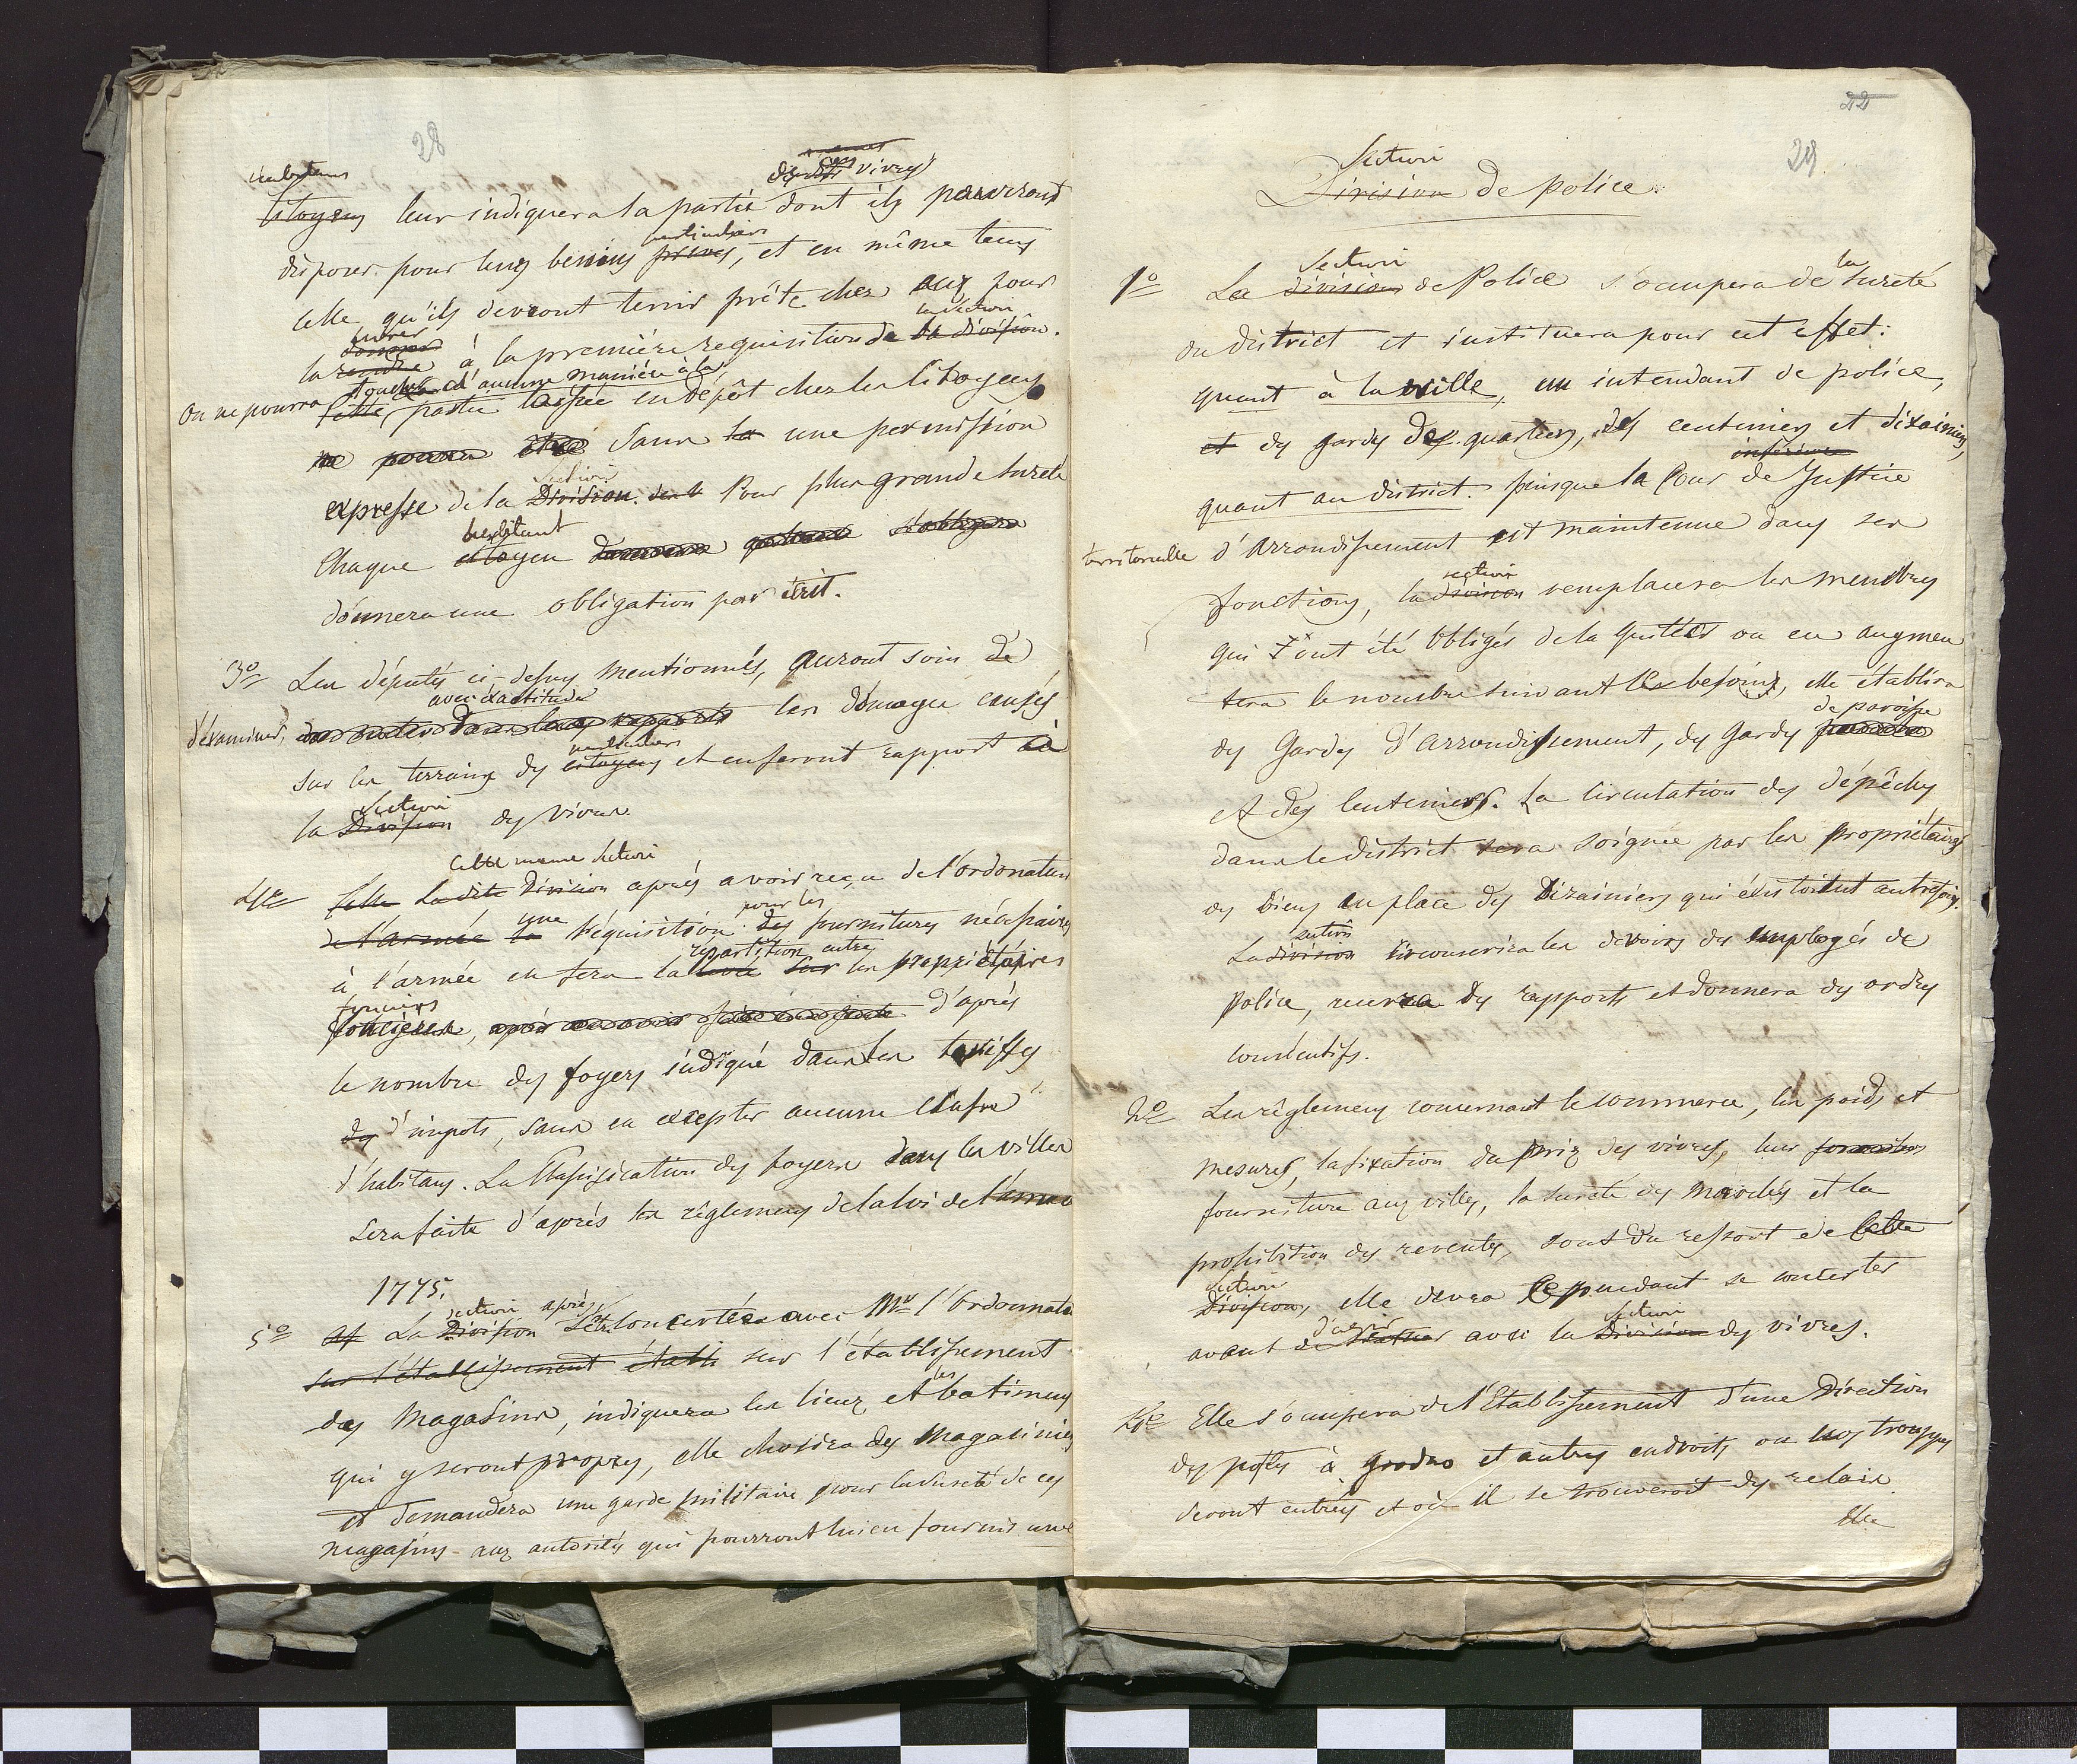 28
habitans
des vivres
Citoyens leur indiquera la partie dont ils pourront
particuliers
disposer pour leurs besoins privés, et en même tems
celle qu'ils devront tenir prête chez eux pour
livrer
la Section
la rendre à la première requisition de la division.
toucher d'aucune manière à la
On ne pourra cette partie laissée en dépôt chez les Citoyens
ne pourra être sans la une permission
Section
expresse de la Division. Pour plus grande sureté
habitant
Chaque citoyen s'obligera
donnera une obligation par écrit.
3º Les députés ci-dessus mentionnés, auront soin de
avec exactitude
d'examiner, les domages causés
particuliers
sur les terrains des citoyens et en feront rapport à
Section
la Division des vivres.
Cette meme Section
4º Cette La dite Division après avoir reçu de l'ordonateur
une pour les
de l'armée la réquisition des fournitures nécessaires
répartition entre
à l'armée en fera la levée sur les propriétaires
fonciers
foncières, d'après
le nombre des foyers indiqué dans les tariffes
des d'impots, sans en excepter aucune classe
d'habitans. La Classification des foyers dans les villes
sera faite d'après les règlemens de la loi de l'année
1775.
section après
5º La Division s'etre concertée avec Mr l'Ordonnateur
sur l'établissement établi sur l'établissement
les
des Magasins, indiquera les lieux et batimens
qui y seront propres, elle choisira des Magasiniers
et demandera une garde militaire pour la sureté de ces
magasins aux autorités qui pourront lui en fournir une
22
29
Section
Division de Police
Section
la
1º La division de Police s'occupera de Sureté
du district et instituera pour cet effet:
quant à la ville, un intendant de police,
et des gardes des quartiers, des centeniers et dixainiers,
inférieure
quant au district. puisque la Cour de Justice
territorielle d'Arrondissement est maintenue dans ses
section
fonctions, la division remplacera les membres
qui ont été obligés de la quitter ou en augmen
tera le nombre suivant les besoins, elle établira
de paroisse
des Gardes d'arrondissement, des Gardes
et des Centeniers. La circulation des dépêches
dans le district sera soignée par les propriétaires
des biens en place des Dizainiers qui éxistoient autrefois.
section
La division circonscrira les devoirs des employés de
police, recevra des rapports et donnera des ordres
consécutifs.
2º Les règlemens concernant le commerce, les poids et
mesures, la fixation du prix des vivres, leur
fourniture aux villes, la sureté des marchés et la
prohibition des reventes, sont du ressort de cette
Section
Division, elle devra cependant se concerter
d'agir
Section
avant avec la Division des vivres.
Elle s'occupera de l'Etablissement d'une Direction
des postes à Grodno et autres endroits ou nos trouppes
seront entrées et où il se trouveroit des relais.
Elle